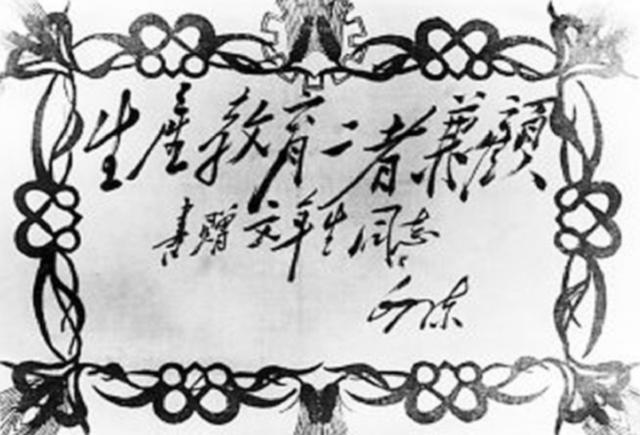 生產教育二者兼顧
書贈文年生同志